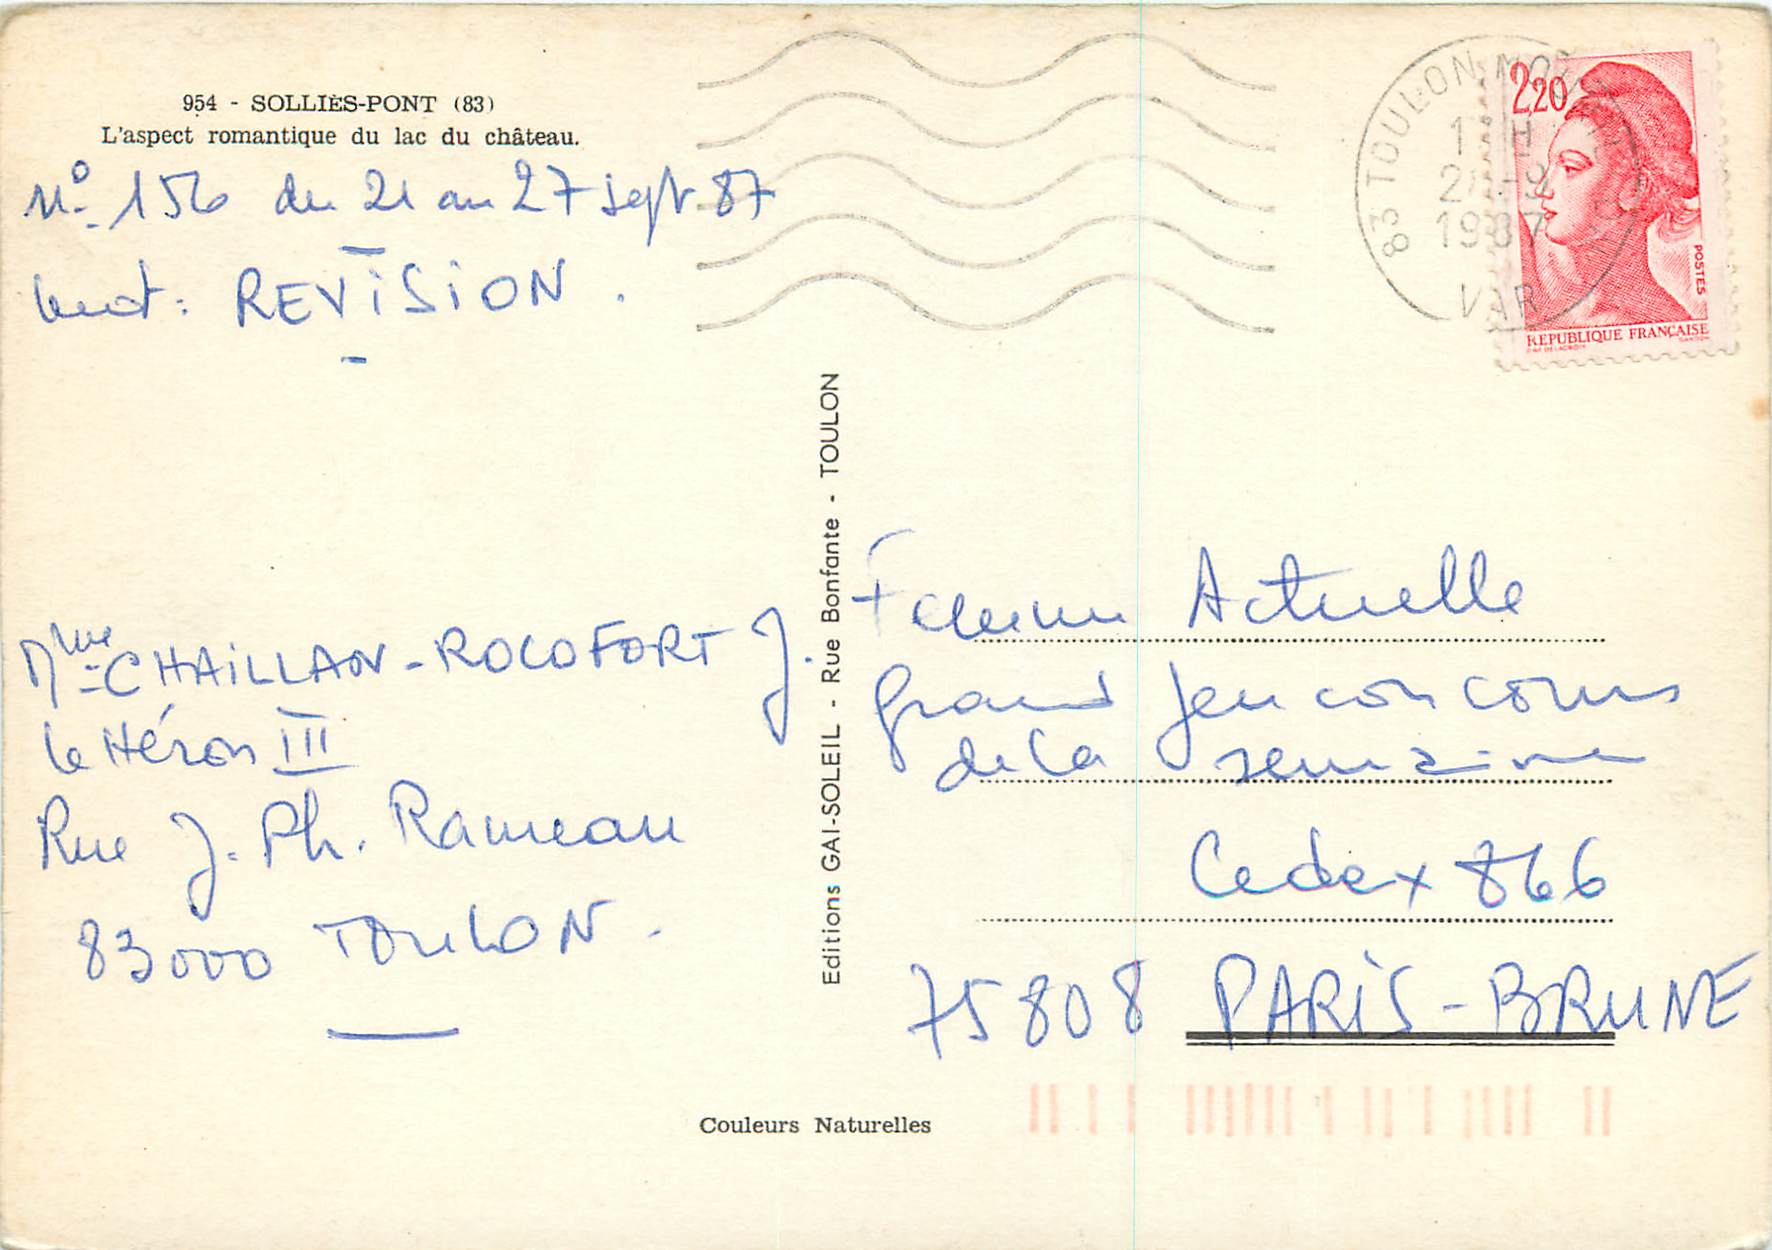 954 - SOLLIÈS-PONT (83)
L'aspect romantique du lac du château.
N° 156 du 21 au 27 sept 87
mot : REVISION .
Mme CHAILLAN-ROCOFORT J.
le Héron III
Rue J. Ph. Rameau
83000 TOULON .
Editions GAI-SOLEIL - Rue Bonfante - TOULON
Couleurs Naturelles
83 TOULON
1987
VAR
2,20
POSTES
REPUBLIQUE FRANÇAISE
Femme Actuelle
Grand Jeu concours
de la semaine
Cedex 866
75808 PARIS-BRUNE